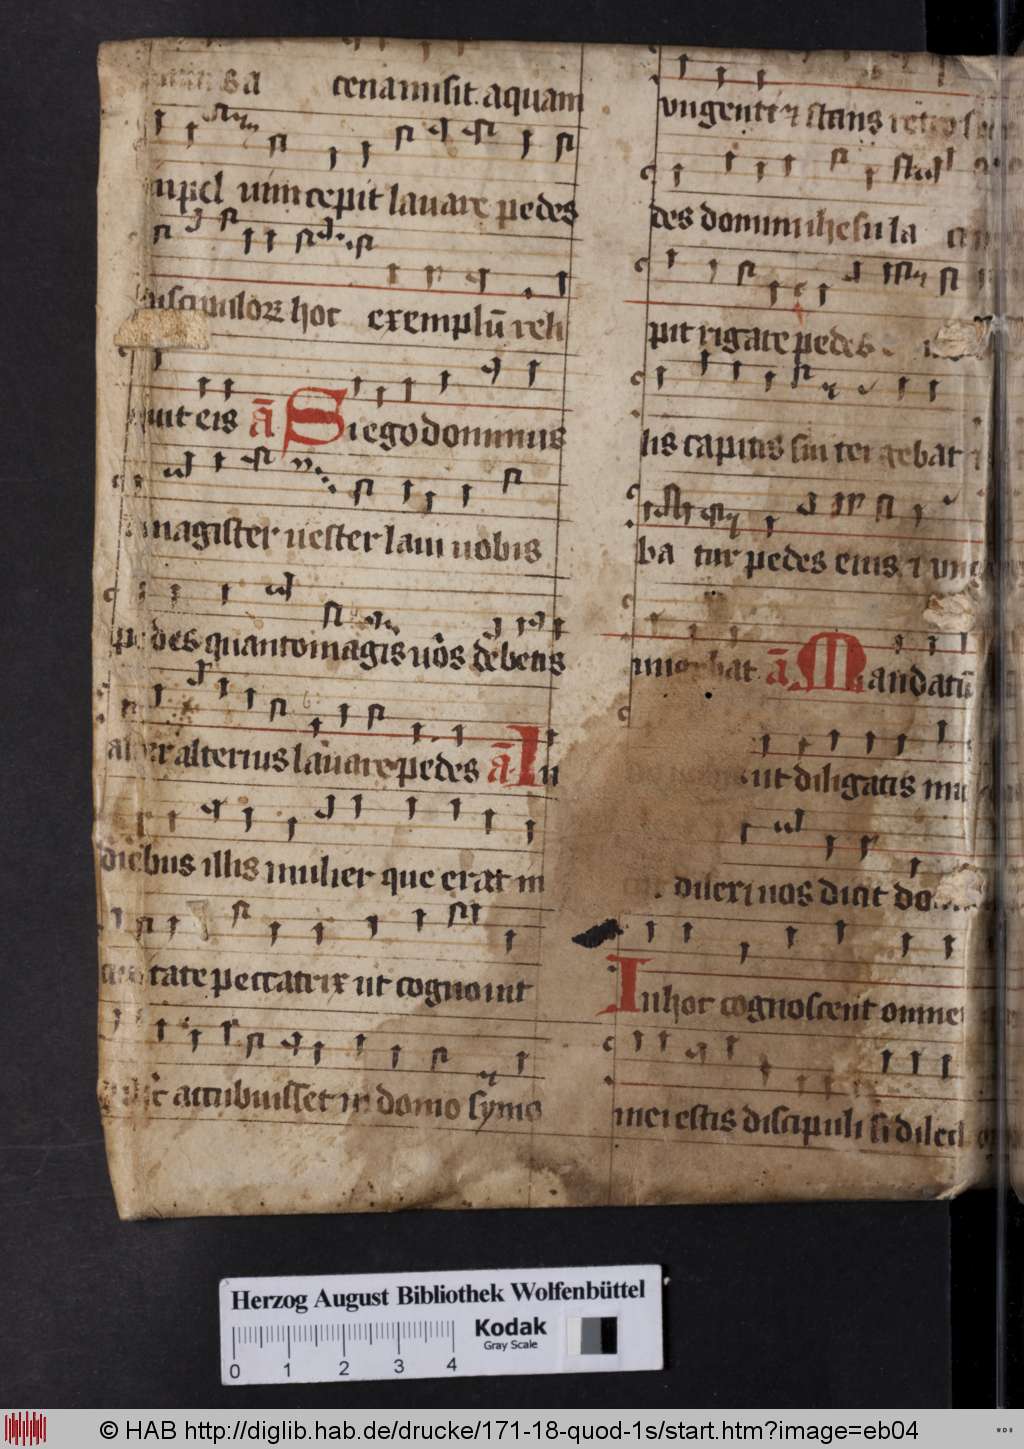 cena misit aquam
cepit lavare pedes
hoc exemplū reli
quit eis ā Si ego dominus
magister uester laui uobis
pedes quanto magis uos debetis
alter alterius lauare pedes ā In
diebus illis mulier que erat in
ciuitate peccatrix ut cognouit
accubuisset in domo symo
ungenti ⁊ stans retro
des domini ihesu la
pit rigare pedes
lis capitis sui tergebat
ba tur pedes eius ⁊ un
ā Mandatū
ut diligatis
dilexi uos dicit do
In hoc cognoscent omnes
mei estis discipuli si dilecti
Herzog August Bibliothek Wolfenbüttel
Kodak
Gray Scale
0 1 2 3 4
© HAB http://diglib.hab.de/drucke/171-18-quod-1s/start.htm?image=eb04